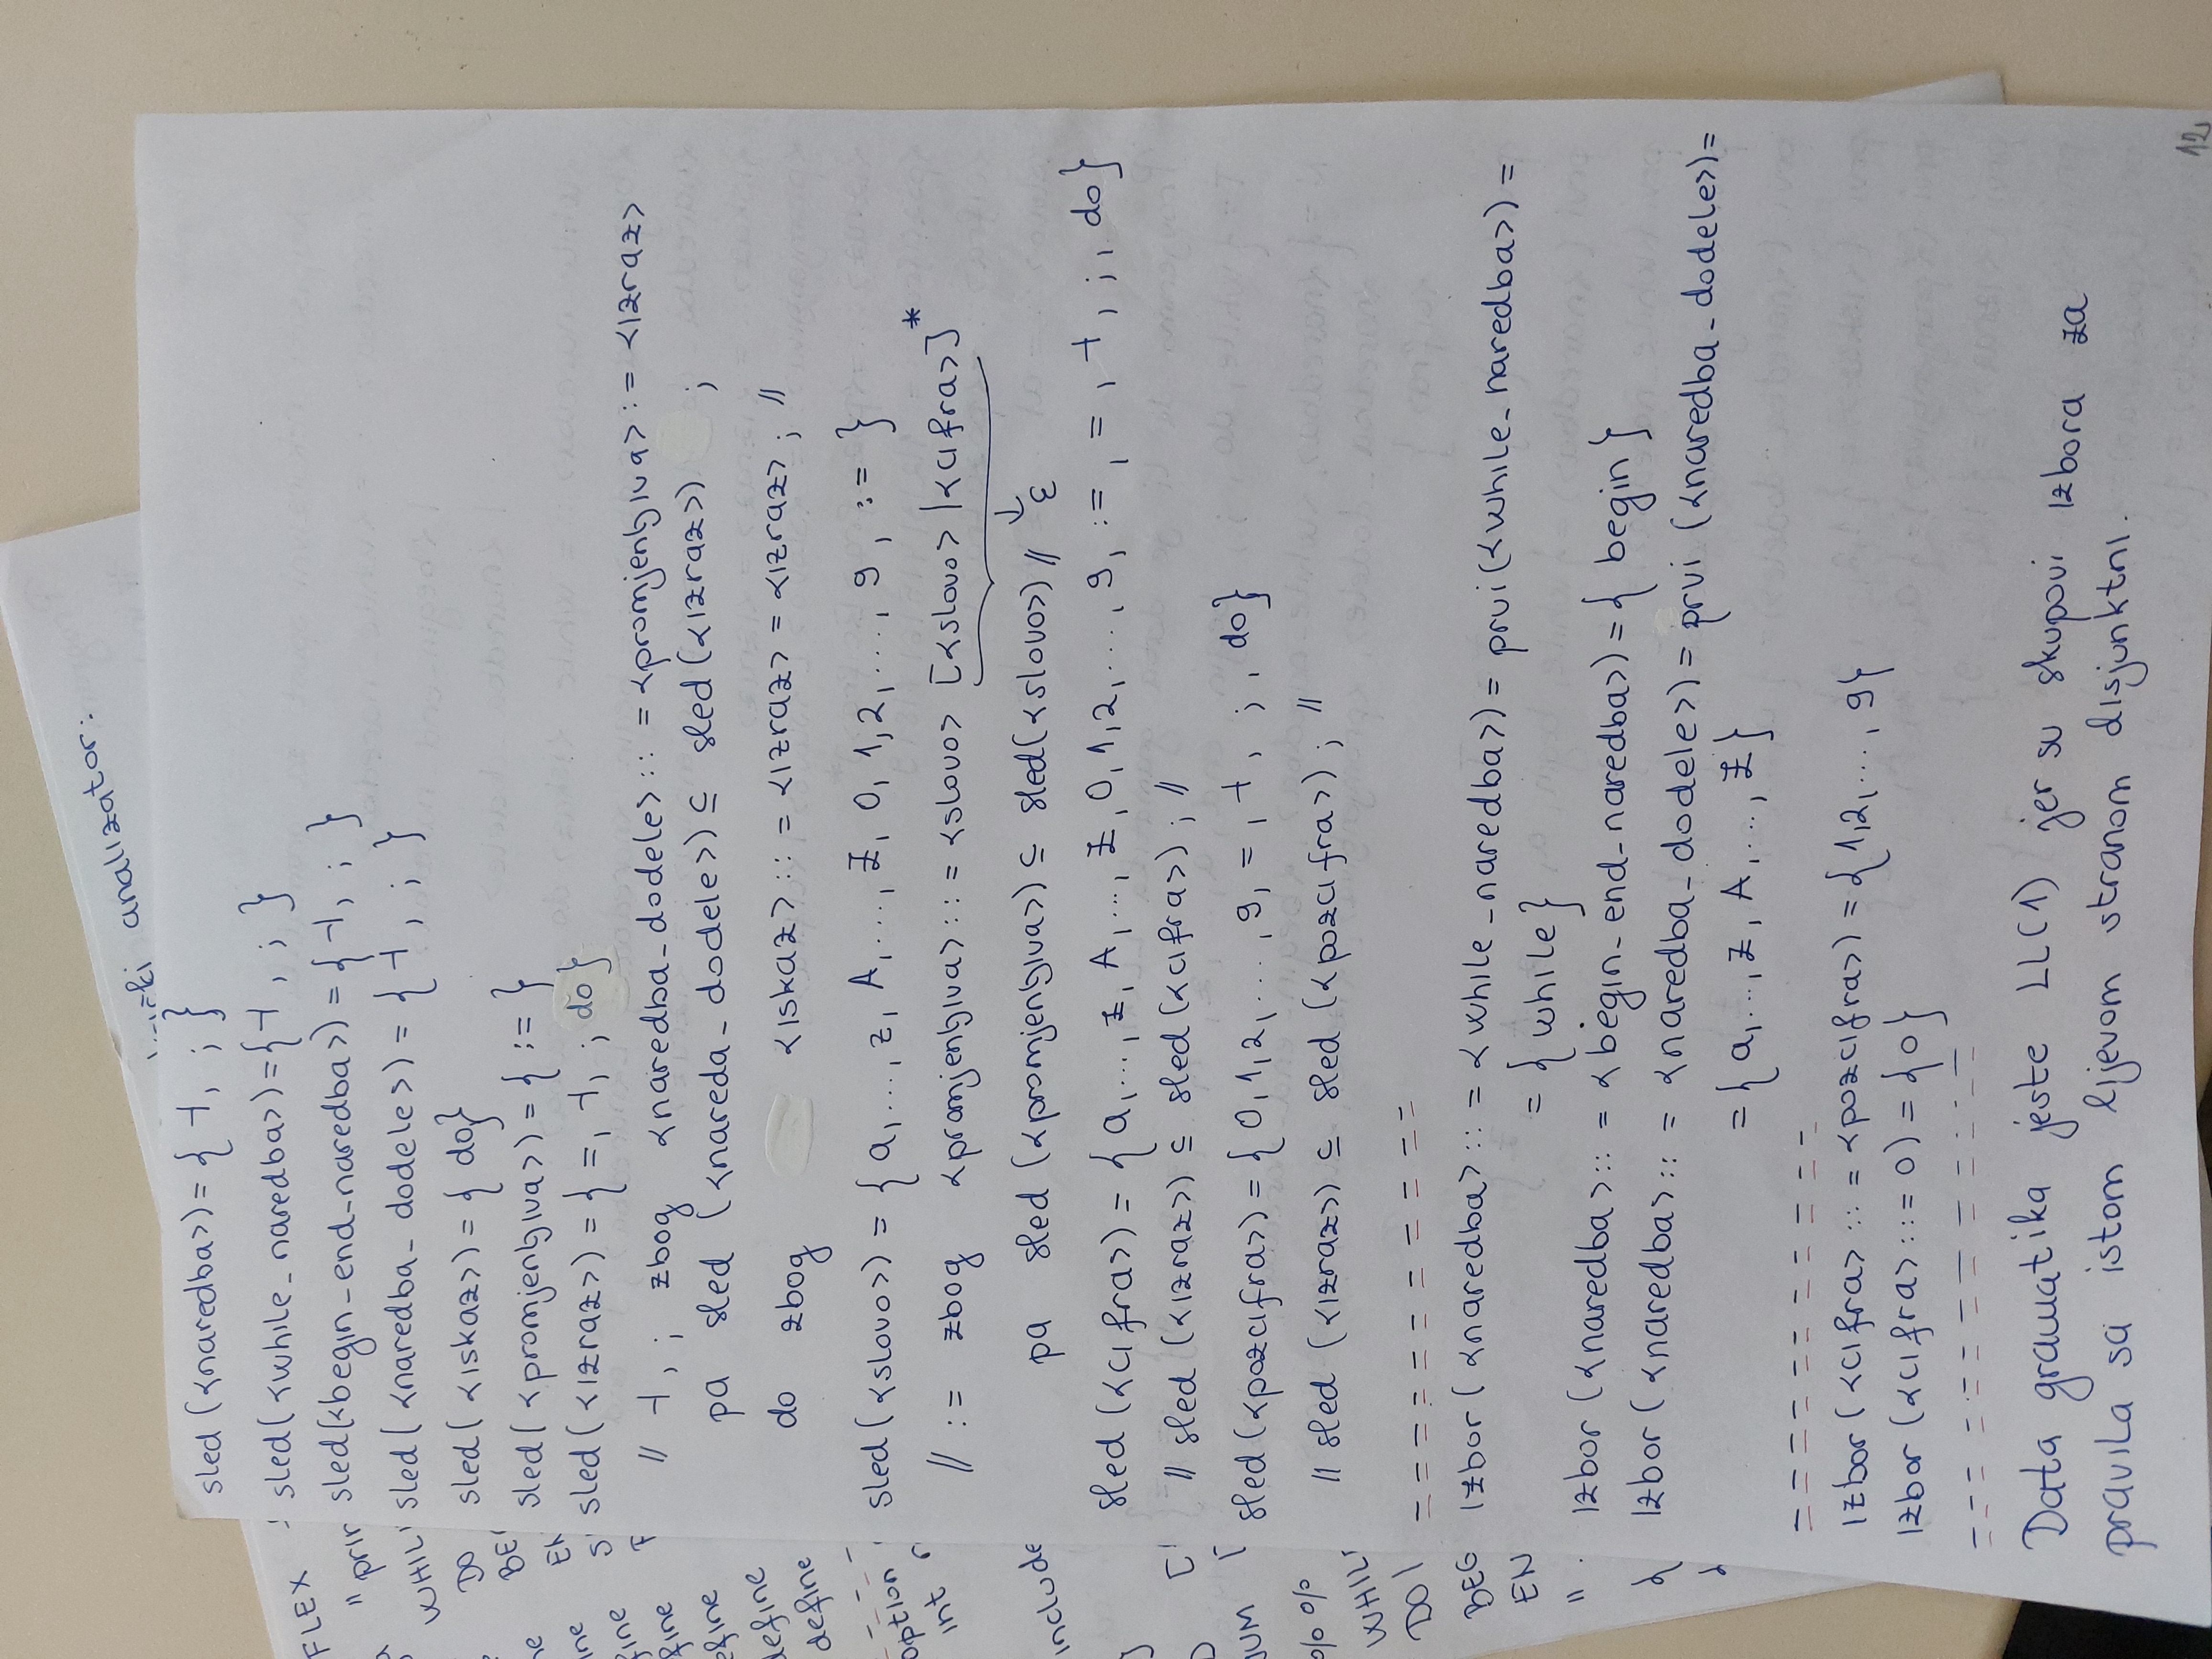 analizator:
sled (<naredba>) = { ⊣, ; }
sled (<while_naredba>) = { ⊣ , ; }
sled (<begin_end_naredba>) = { ⊣, ; }
sled ( <naredba_dodele>) = { ⊣ , ; }
sled ( <iskaz>) = { do }
sled ( <promjenljiva>) = { := }
sled ( <izraz>) = { =, ⊣, ; do }
// ⊣, ; zbog <naredba_dodele> :: = <promjenljiva> := <izraz>
pa sled (<nareda_dodele>) ⊆ sled (<izraz>) ;
do zbog <iskaz> :: = <izraz> = <izraz> ; //
sled (<slovo>) = { a, ..., z, A, ..., Z, 0, 1, 2, ..., 9 , := }
// := zbog <promjenljiva> :: = <slovo> [<slovo> |<cifra>]*
pa sled (<promjenljiva>) ⊆ sled (<slovo>) // ↓ ε
sled (<cifra>) = { a, ..., z, A, ..., Z, 0, 1, 2, ..., 9, := , = , ⊣ , ; , do }
// sled (<izraz>) ⊆ sled (<cifra>) ; //
sled (<pozcifra>) = { 0, 1, 2, ..., 9, = , ⊣ , ; , do }
// sled (<izraz>) ⊆ sled (<pozcifra>) ; //
Izbor ( <naredba> :: = <while_naredba>) = prvi (<while_naredba>) =
= { while }
Izbor (<naredba> :: = <begin_end_naredba>) = { begin }
Izbor ( <naredba> :: = <naredba_dodele>) = prvi (<naredba_dodele>) =
= { a, ..., z, A, ..., Z }
Izbor ( <cifra> :: = <pozcifra>) = { 1, 2, ..., 9 }
Izbor (<cifra> ::= 0) = { 0 }
Data gramatika jeste LL(1) jer su skupovi izbora za
pravila sa istom lijevom stranom disjunktni.
12
FLEX
DO
option
int
include
define
define
%%
DO |